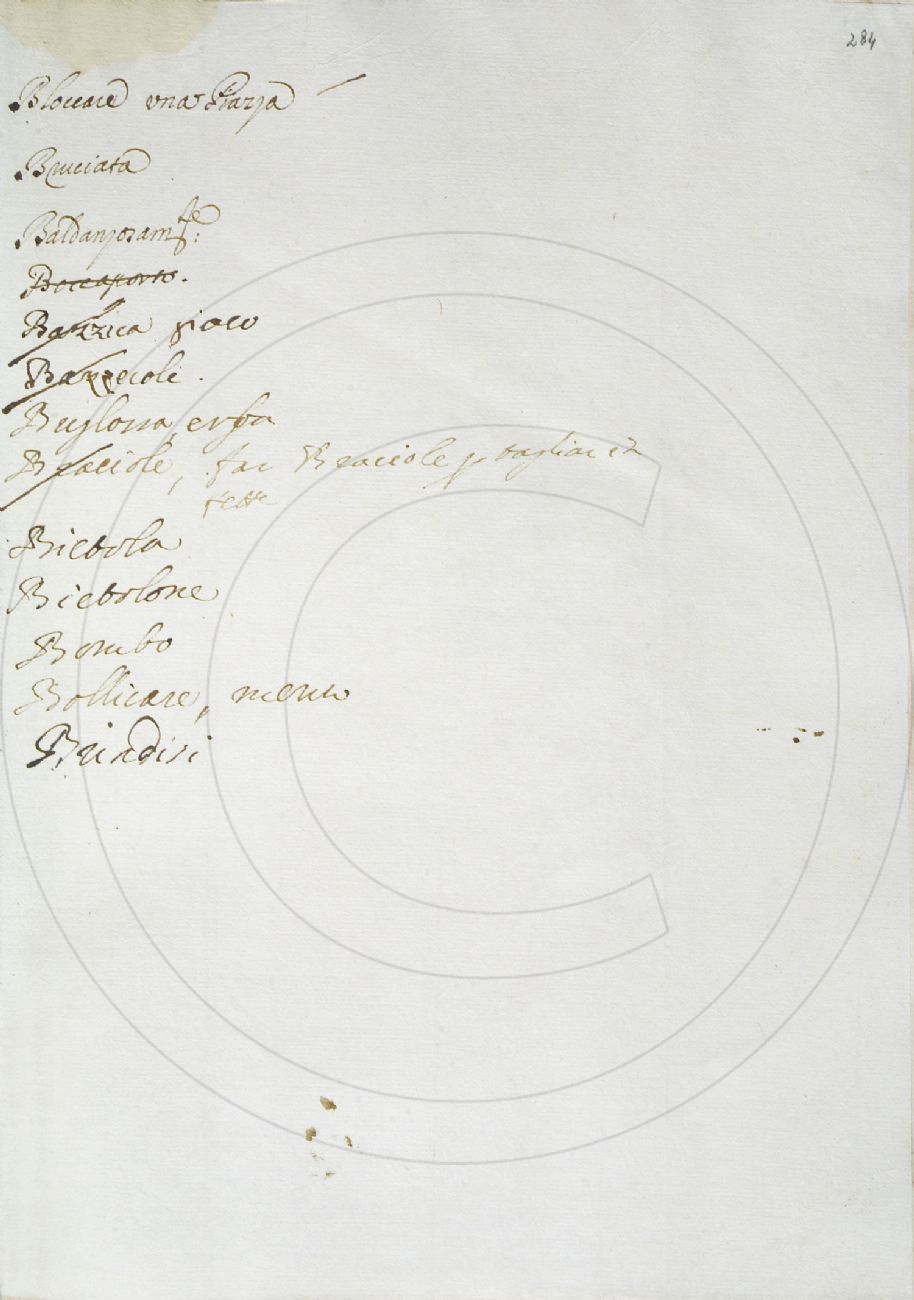 284
Bloccare una Piazza
Bruciata
Baldanzosam.te
Boccaporto.
Bazzica gioco
Bazzecole.
Buglossa, erba
Braciole, far Braciole p tagliar in
fette
Bietola
Bietolone
Bombo
Bollicare, meno
Brindisi